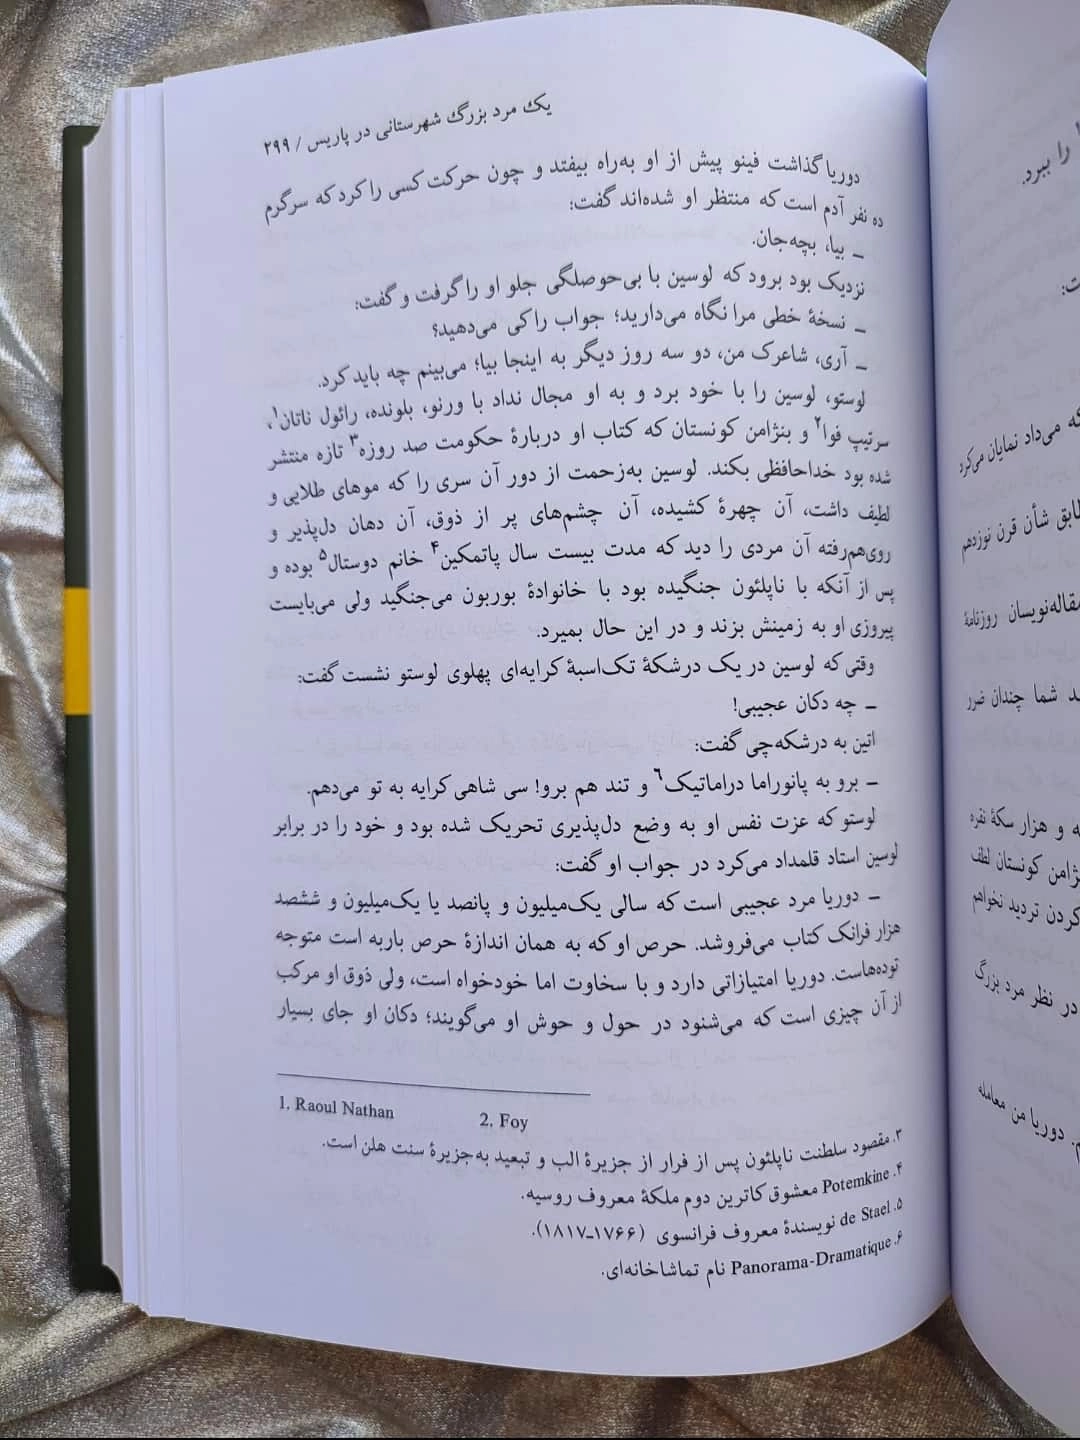 یک مرد بزرگ شهرستانی در پاریس / ۲۹۹
دوریا گذاشت فینو پیش از او به‌راه بیفتد و چون حرکت کسی را کرد که سرگرم
ده نفر آدم است که منتظر او شده‌اند گفت:
ـ بیا، بچه‌جان.
نزدیک بود برود که لوسین با بی‌حوصلگی جلو او را گرفت و گفت:
ـ نسخهٔ خطی مرا نگاه می‌دارید؛ جواب را کی می‌دهید؟
ـ آری، شاعرک من، دو سه روز دیگر به اینجا بیا؛ می‌بینم چه باید کرد.
لوستو، لوسین را با خود برد و به او مجال نداد با ورنو، بلونده، رائول ناتان۱،
سرتیپ فوا۲ و بنژامن کونستان که کتاب او دربارهٔ حکومت صد روزه۳ تازه منتشر
شده بود خداحافظی بکند. لوسین به‌زحمت از دور آن سری را که موهای طلایی و
لطیف داشت، آن چهرهٔ کشیده، آن چشم‌های پر از ذوق، آن دهان دل‌پذیر و
روی‌هم‌رفته آن مردی را دید که مدت بیست سال پاتمکین۴ خانم دوستال۵ بوده و
پس از آنکه با ناپلئون جنگیده بود با خانوادهٔ بوربون می‌جنگید ولی می‌بایست
پیروزی او به زمینش بزند و در این حال بمیرد.
وقتی که لوسین در یک درشکهٔ تک‌اسبهٔ کرایه‌ای پهلوی لوستو نشست گفت:
ـ چه دکان عجیبی!
اتین به درشکه‌چی گفت:
ـ برو به پانوراما دراماتیک۶ و تند هم برو! سی شاهی کرایه به تو می‌دهم.
لوستو که عزت نفس او به وضع دل‌پذیری تحریک شده بود و خود را در برابر
لوسین استاد قلمداد می‌کرد در جواب او گفت:
ـ دوریا مرد عجیبی است که سالی یک‌میلیون و پانصد یا یک‌میلیون و ششصد
هزار فرانک کتاب می‌فروشد. حرص او که به همان اندازهٔ حرص باربه است متوجه
توده‌هاست. دوریا امتیازاتی دارد و با سخاوت اما خودخواه است، ولی ذوق او مرکب
از آن چیزی است که می‌شنود در حول و حوش او می‌گویند؛ دکان او جای بسیار
1. Raoul Nathan 2. Foy
۳. مقصود سلطنت ناپلئون پس از فرار از جزیرهٔ الب و تبعید به‌جزیرهٔ سنت هلن است.
۴. Potemkine معشوق کاترین دوم ملکهٔ معروف روسیه.
۵. de Stael نویسندهٔ معروف فرانسوی (۱۷۶۶ـ۱۸۱۷).
۶. Panorama-Dramatique نام تماشاخانه‌ای.
را ببرد.
که می‌داد نمایان می‌کرد
شأن قرن نوزدهم
مقاله‌نویسان روزنامهٔ
شما چندان ضرر
و هزار سکهٔ نقره
کونستان لطف
کردن تردید نخواهم
در نظر مرد بزرگ
دوریا من معامله